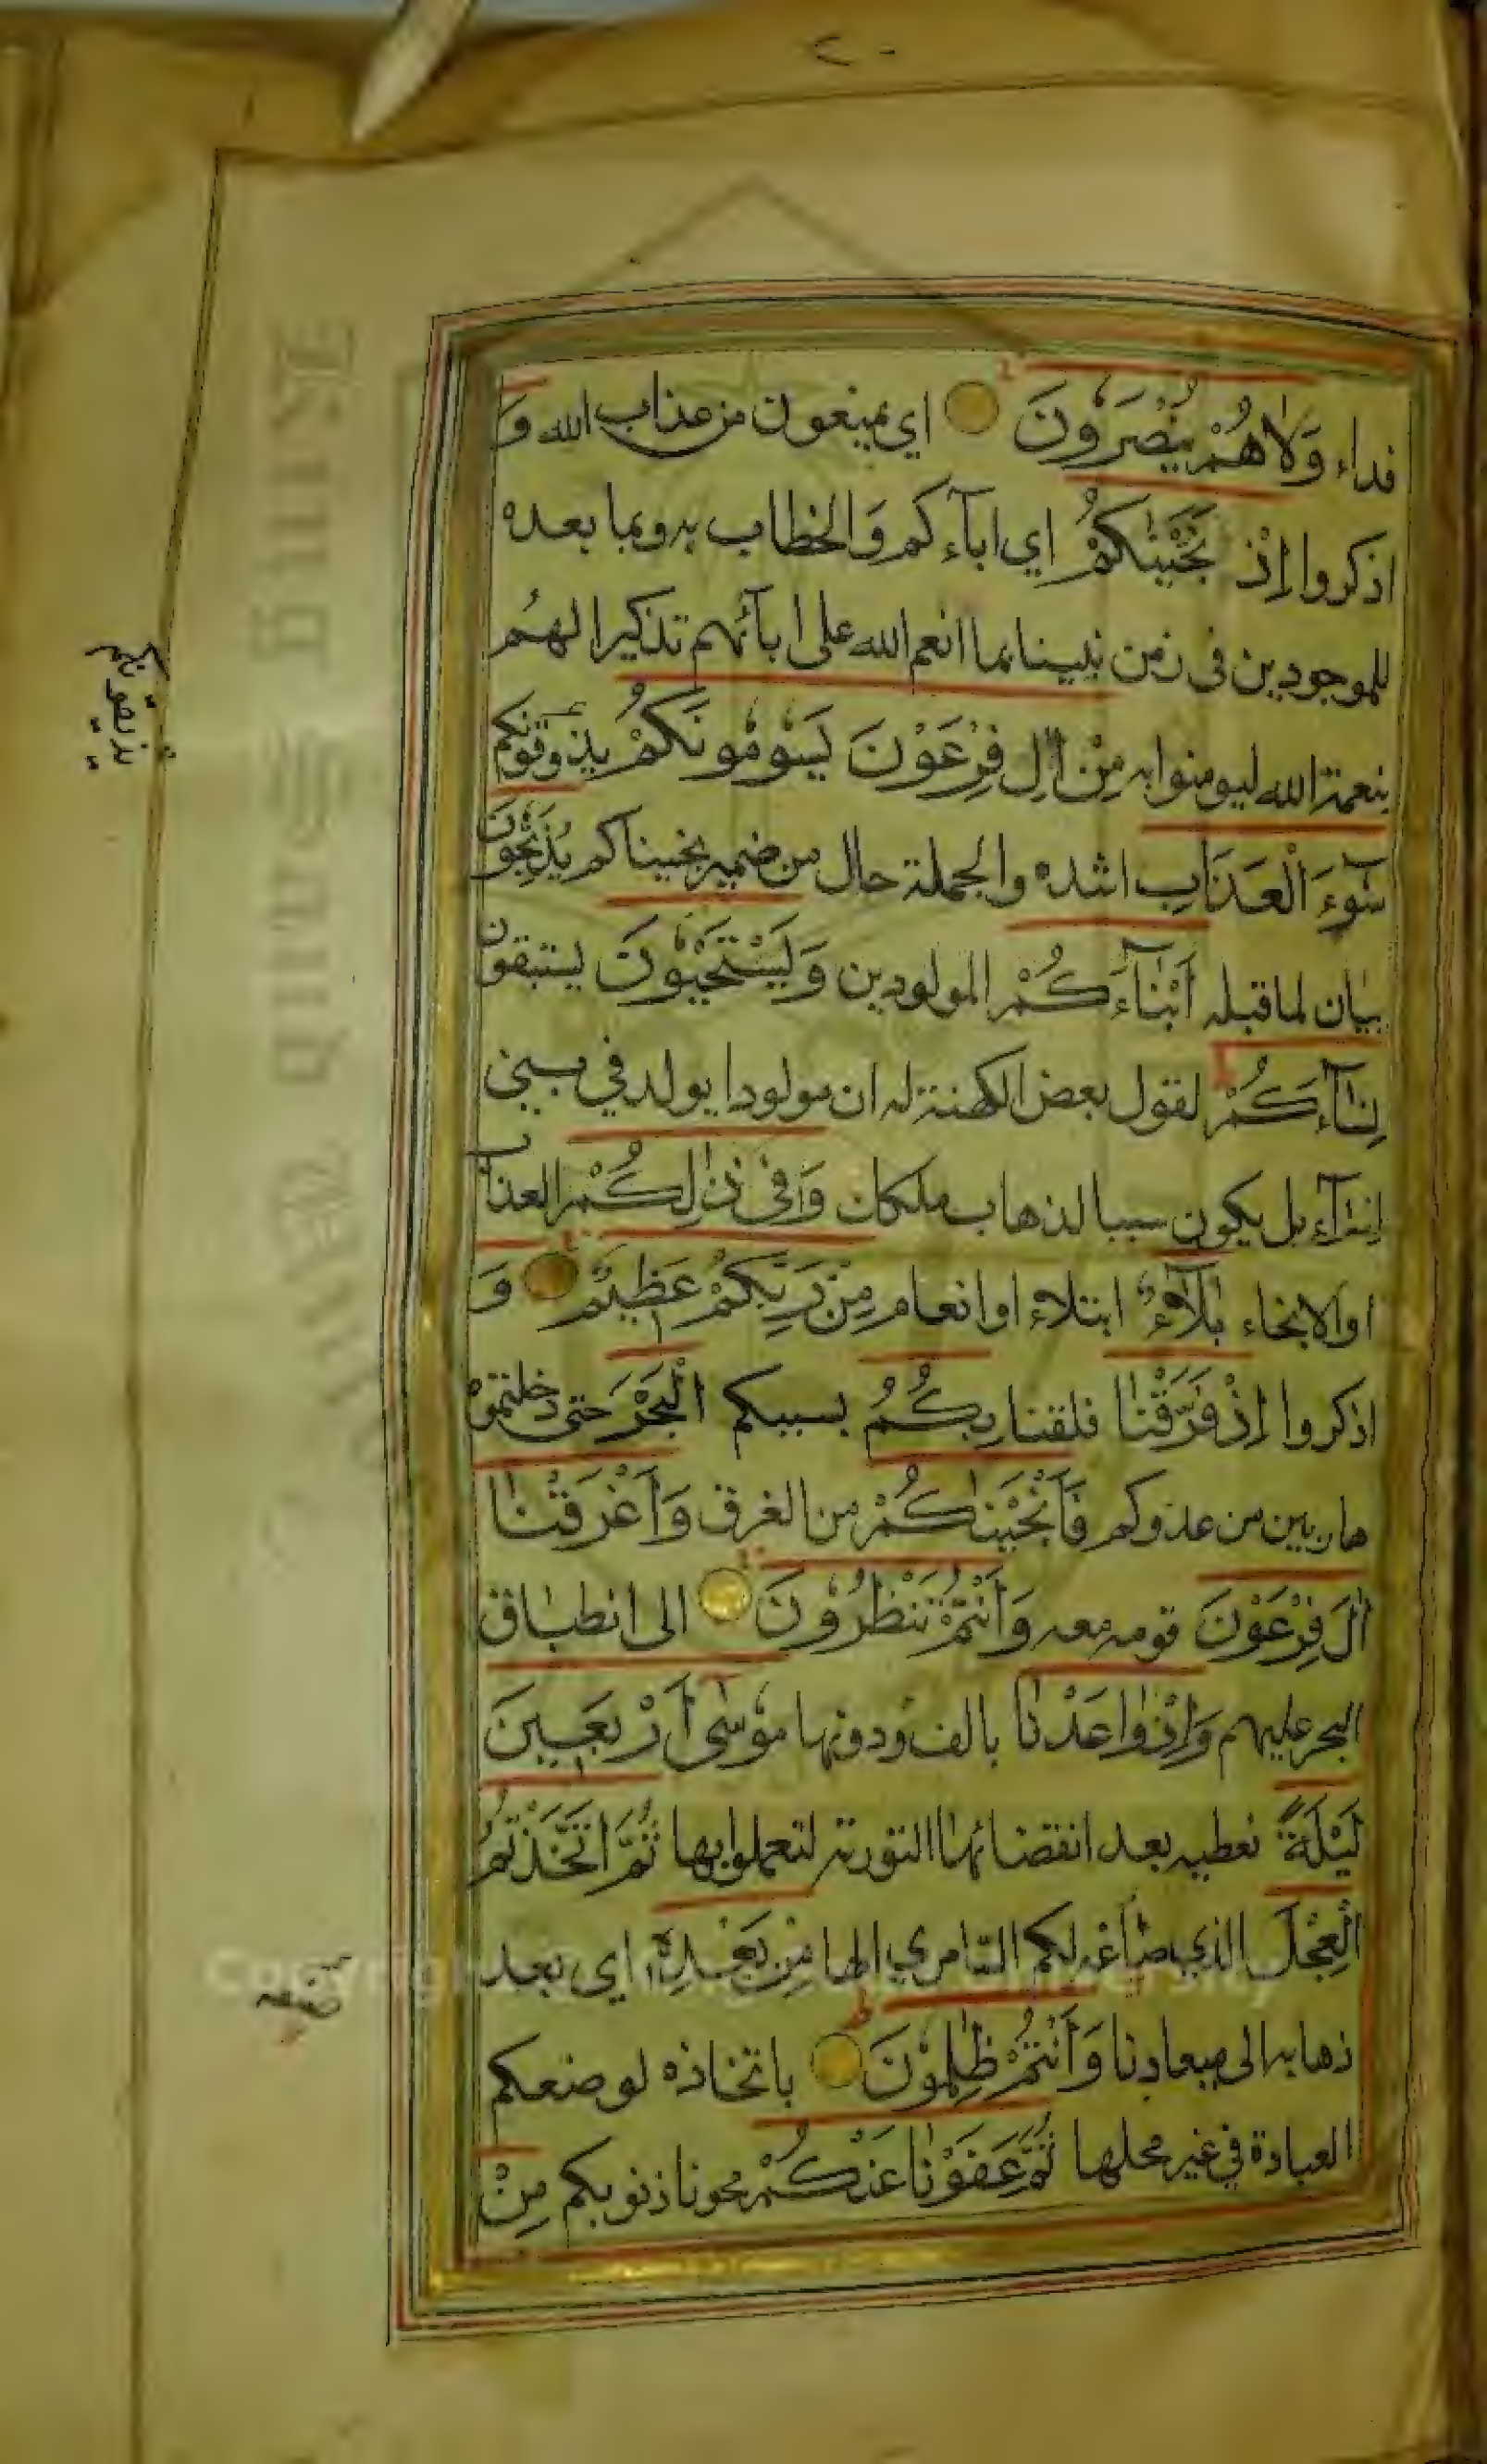 ٢٠
فداء وَلَا هُمْ يُنْصَرُونَ اي يمنعون من عذاب الله وَ
اذكروا إِذْ نَجَّيْنٰكُمْ اي اباۤءكم وَالخطاب به وبما بعده
للموجودين في زمن نبينا بما انعم الله على ابآئهم تذكيرا لهُم
بنعمة الله ليومنوا به مِنْ اٰلِ فِرْعَوْنَ يَسُوْمُوْنَكُمْ يذوقونكم
سُوْۤءَ الْعَذَابِ اشده والجملة حال من ضمير نجيناكم يُذَبِّحُوْنَ
بيان لما قبله اَبْنَاۤءَكُمْ المولودين وَيَسْتَحْيُوْنَ يستبقون
نِسَاۤءَكُمْ لقول بعض الكهنة له ان مولودا يولد في بني
اسرآءيل يكون سببا لذهاب ملكك وَفِيْ ذٰلِكُمْ العذاب
او الانجاء بَلَاۤءٌ ابتلاء او انعام مِنْ رَبِّكُمْ عَظِيْمٌ وَ
اذكروا اِذْ فَرَقْنَا فلقنا بِكُمُ بسببكم الْبَحْرَ حتى دخلتموه
هاربين من عدوكم فَاَنْجَيْنٰكُمْ من الغرق وَاَغْرَقْنَا
اٰلَ فِرْعَوْنَ قومه معه وَاَنْتُمْ تَنْظُرُوْنَ الى انطباق
البحر عليهم وَاِذْ وٰاعَدْنَا بالف ودونها مُوْسٰى اَرْبَعِيْنَ
لَيْلَةً نعطيه بعد انقضائها التورية لتعملوا بها ثُمَّ اتَّخَذْتُمُ
الْعِجْلَ الذي صاغه لكم السامري الها مِنْ بَعْدِهٖ اي بعد
ذهابه الى ميعادنا وَاَنْتُمْ ظٰلِمُوْنَ باتخاذه لوضعكم
العبادة في غير محلها ثُمَّ عَفَوْنَا عَنْكُمْ محونا ذنوبكم مِنْ